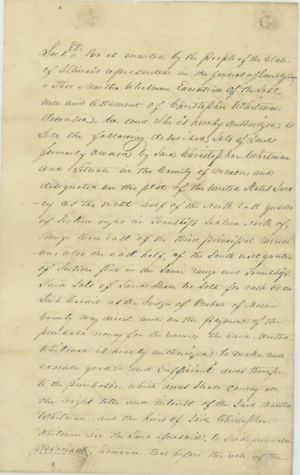 Sec 1st Be it enacted by the People of the State
of Illinois represented in the General Assembly
That Martha Whitman Executrix of the last
will and testament of Christopher Whitman
deceased, be and she is hereby authorized to
sell the following described lots of Land
formerly owned by said Christopher Whitman
and situate in the County of Macon and
designated on the plat of the United States Surv
ey as the west half of the North East quarter
of Section eight in Township Sixteen North of
range three east of the third principal meridi
an, also the east half of the South west quarter
of Section five in the same range and Township.
Said Lots of Land shall be sold for cash or on
such credit as the Judge of Probate of Macon
County may direct and on the payment of the
purchase money for the same, the said Martha
Whitman is hereby authorized to make and
execute good and sufficient deeds therefor
to the purchaser, which deeds shall convey all
the right title and interest of the said Martha
Whitman and the heirs of said Christopher
Whitman in the Land aforesaid, to such purchaser
however, that before the sale of the